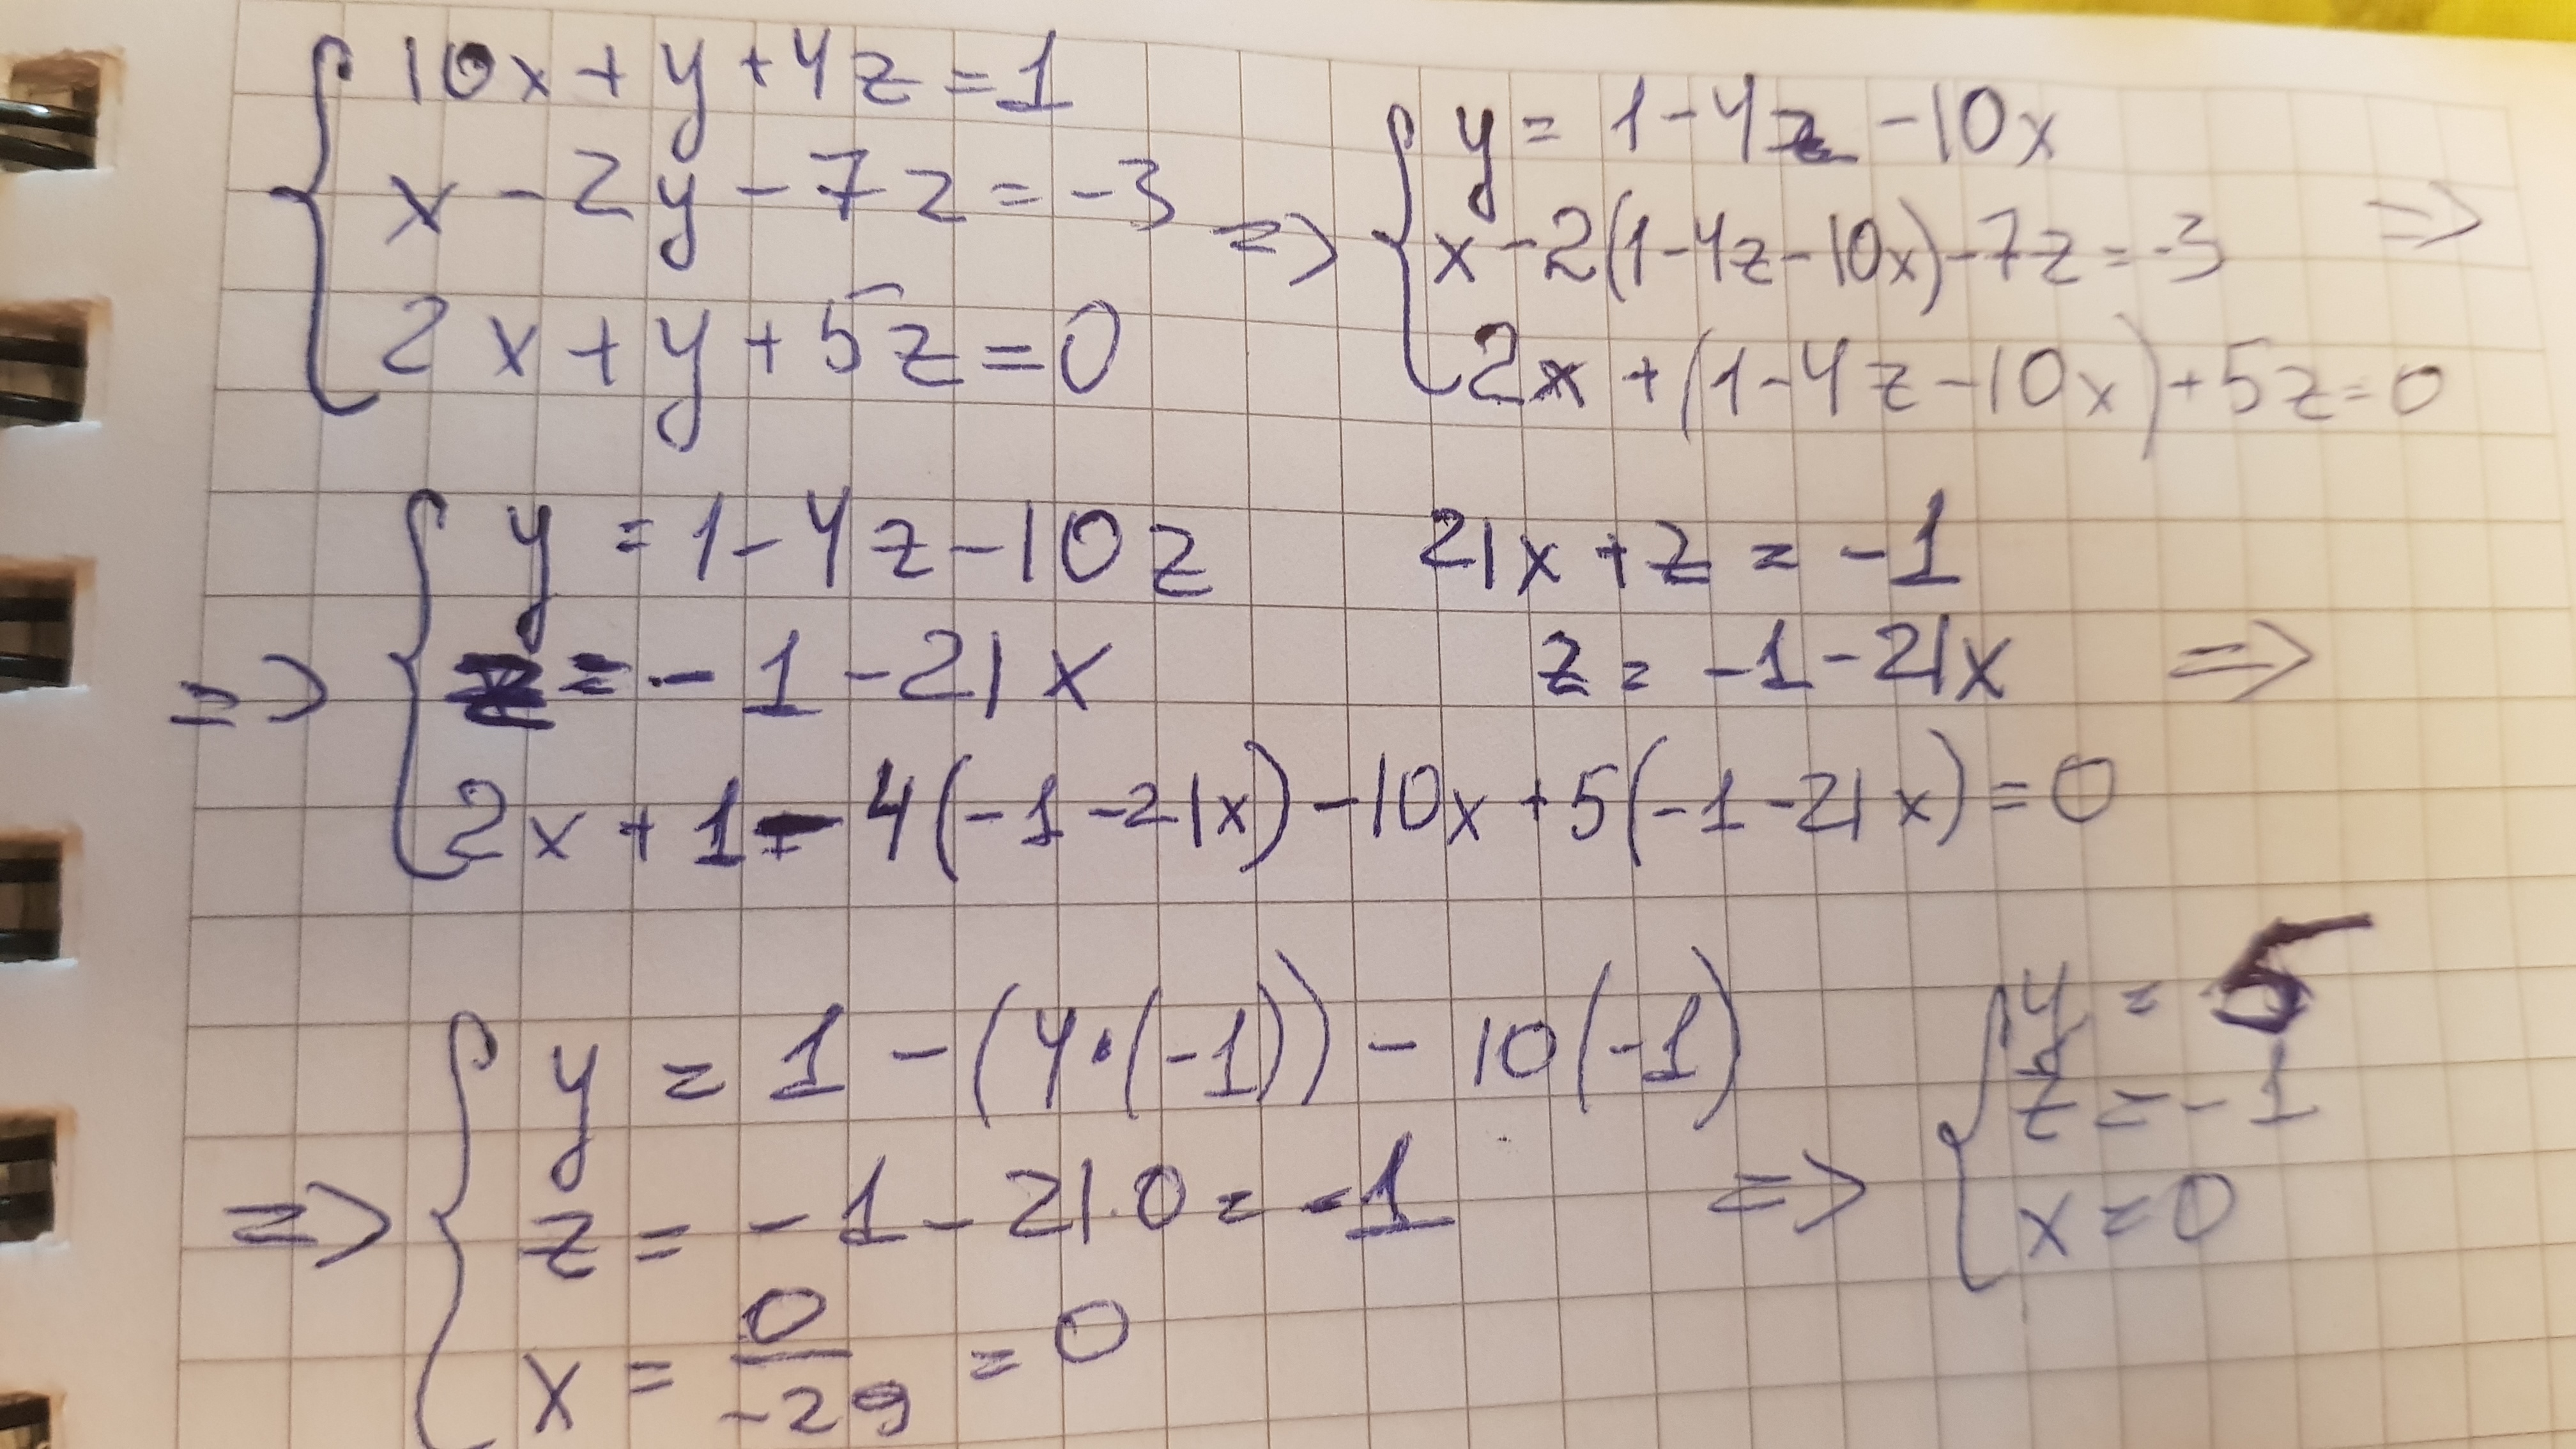 10x + y + 4z = 1
x - 2y - 7z = -3
2x + y + 5z = 0
=> y = 1 - 4z - 10x
x - 2(1 - 4z - 10x) - 7z = -3 =>
2x + (1 - 4z - 10x) + 5z = 0
=> y = 1 - 4z - 10z
z = - 1 - 21x
2x + 1 - 4(-1 - 21x) - 10x + 5(-1 - 21x) = 0
21x + z = -1
z = -1 - 21x =>
=> y = 1 - (4·(-1)) - 10(-1)
z = -1 - 21·0 = -1
x = 0/-29 = 0
=> y = 5
z = -1
x = 0